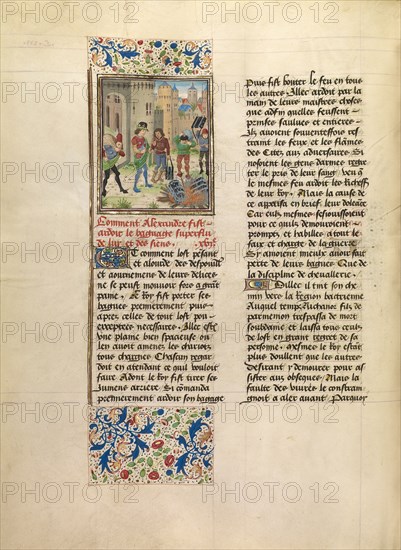 Comment Alexandre fist
ardoir le bagaige superflu
de luy et des siens. xvj
Et comment lost pesant
et alourde des despouill
et aournemens de leurs delices
ne se peust mouvoir fors a grant
paine. Le Roy fist porter ses
bagues premierement puis
apres celles de tout lost
exceptees necessaires. Illec est
une plaine bien spacieuse ou
len avoit amenes les chariots
tous chargies Chascun regar
doit en attendant ce quil vouloit
faire Adont le Roy fist tirer ses
Jumens arriere Et comanda
premierement ardoir son baggage
Puis fist bouter le feu en tous
les autres. Illec ardoit par la
main de leurs maistres choses
que adfin quelles feussent
saulves et entieres
Ilz avoient souventesfois
les feux et les flames
des Citez aux adversaires Et
nosoient les gens darmes regre
ter le pris de leur sang veu q
le mesmes feu ardoit les Richess
de leur Roy. Mais la cause de
ce appaisa en brief leur doleur
Car eulx mesmes sesjouissoient
pour ce quilz demouroient
prompts et habilles a tout le
faix et charge de la guerre
Ilz avoient mieulx avoir fait
perte de leurs bagues Que de
la discipline de chevallerie.
Ainsi il tint son che
min vers la region bactrienne
Auquel temps Nichanor filz de
parmenon trespassa de mort
soubdaine et laissa tous ceulx
de lost en grant regret de sa
personne. Mesmes le Roy estoit
plus doullent que les autres
Desirant y demourer pour as
sister aux obseques. Mais la
faulte des vivres le constrain
gnoit a aler avant Parquoy